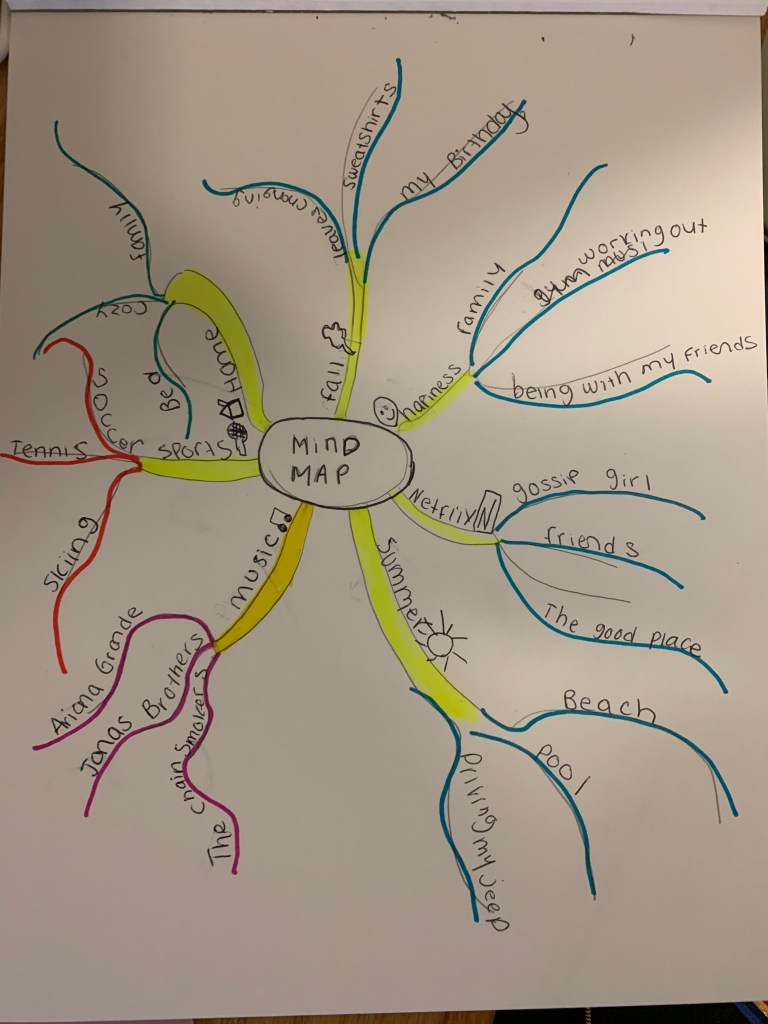 MIND
MAP
fall
leaves changing
sweatshirts
my Birthday
hapiness
Family
working out
being with my friends
Netflix
N
gossip girl
friends
The good place
Summer
Beach
Pool
Driving my jeep
music
Ariana Grande
Jonas Brothers
The Chainsmokers
sports
Soccer
Tennis
Skiing
Home
family
cozy
Bed